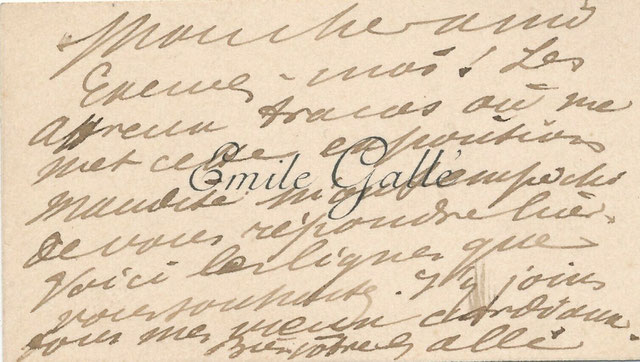 Mon cher ami
Excusez-moi ! Les
affreux tracas où me
met cette exposition
Emile Gallé
maudite m'ont empêché
de vous répondre hier.
Voici les lignes que
vous souhaitez. J'y joins
tous mes vœux cordiaux.
Bien votre Gallé